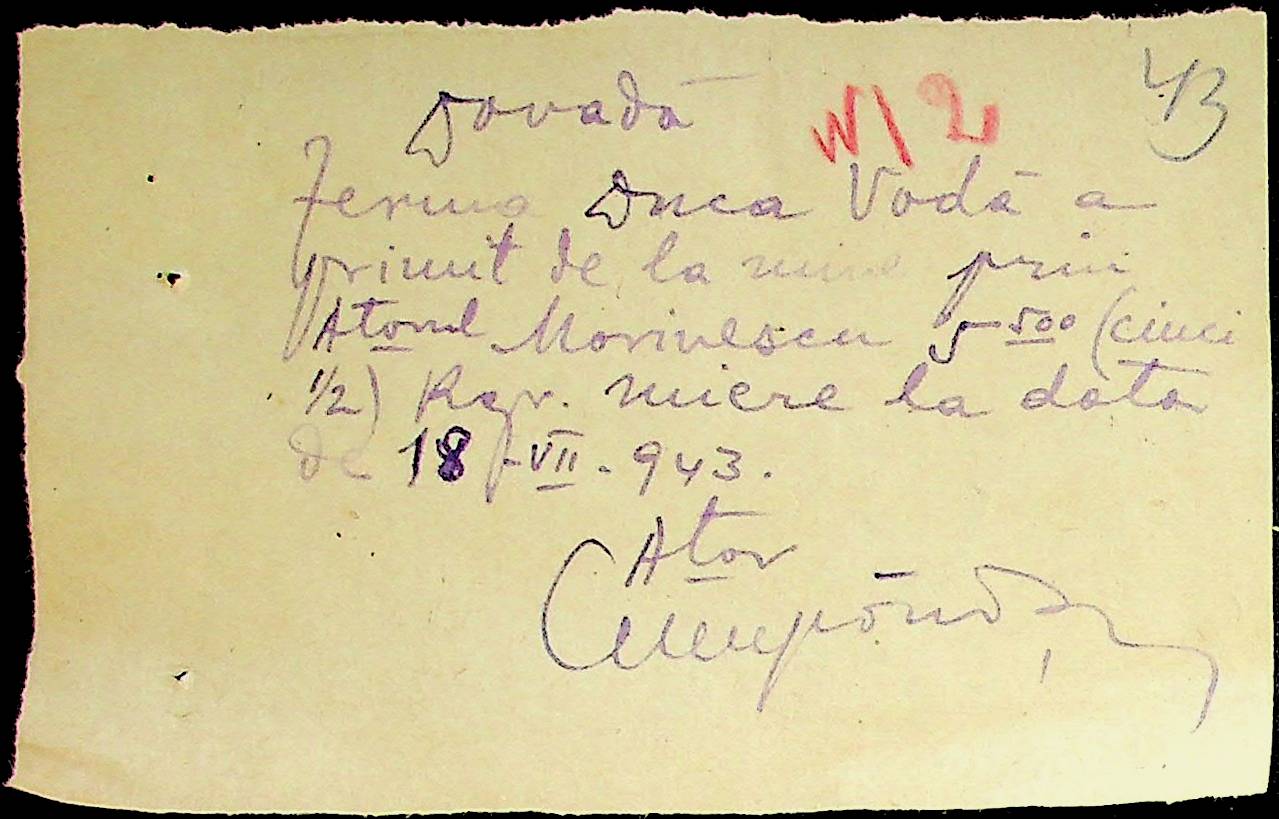 43
Dovadă
N/2
Ferma Duca Vodă a
primit de la mine prin
Atorul Marinescu 5-500 (cinci
1/2) Kgr. miere la data
de 18-VII-943.
Ator